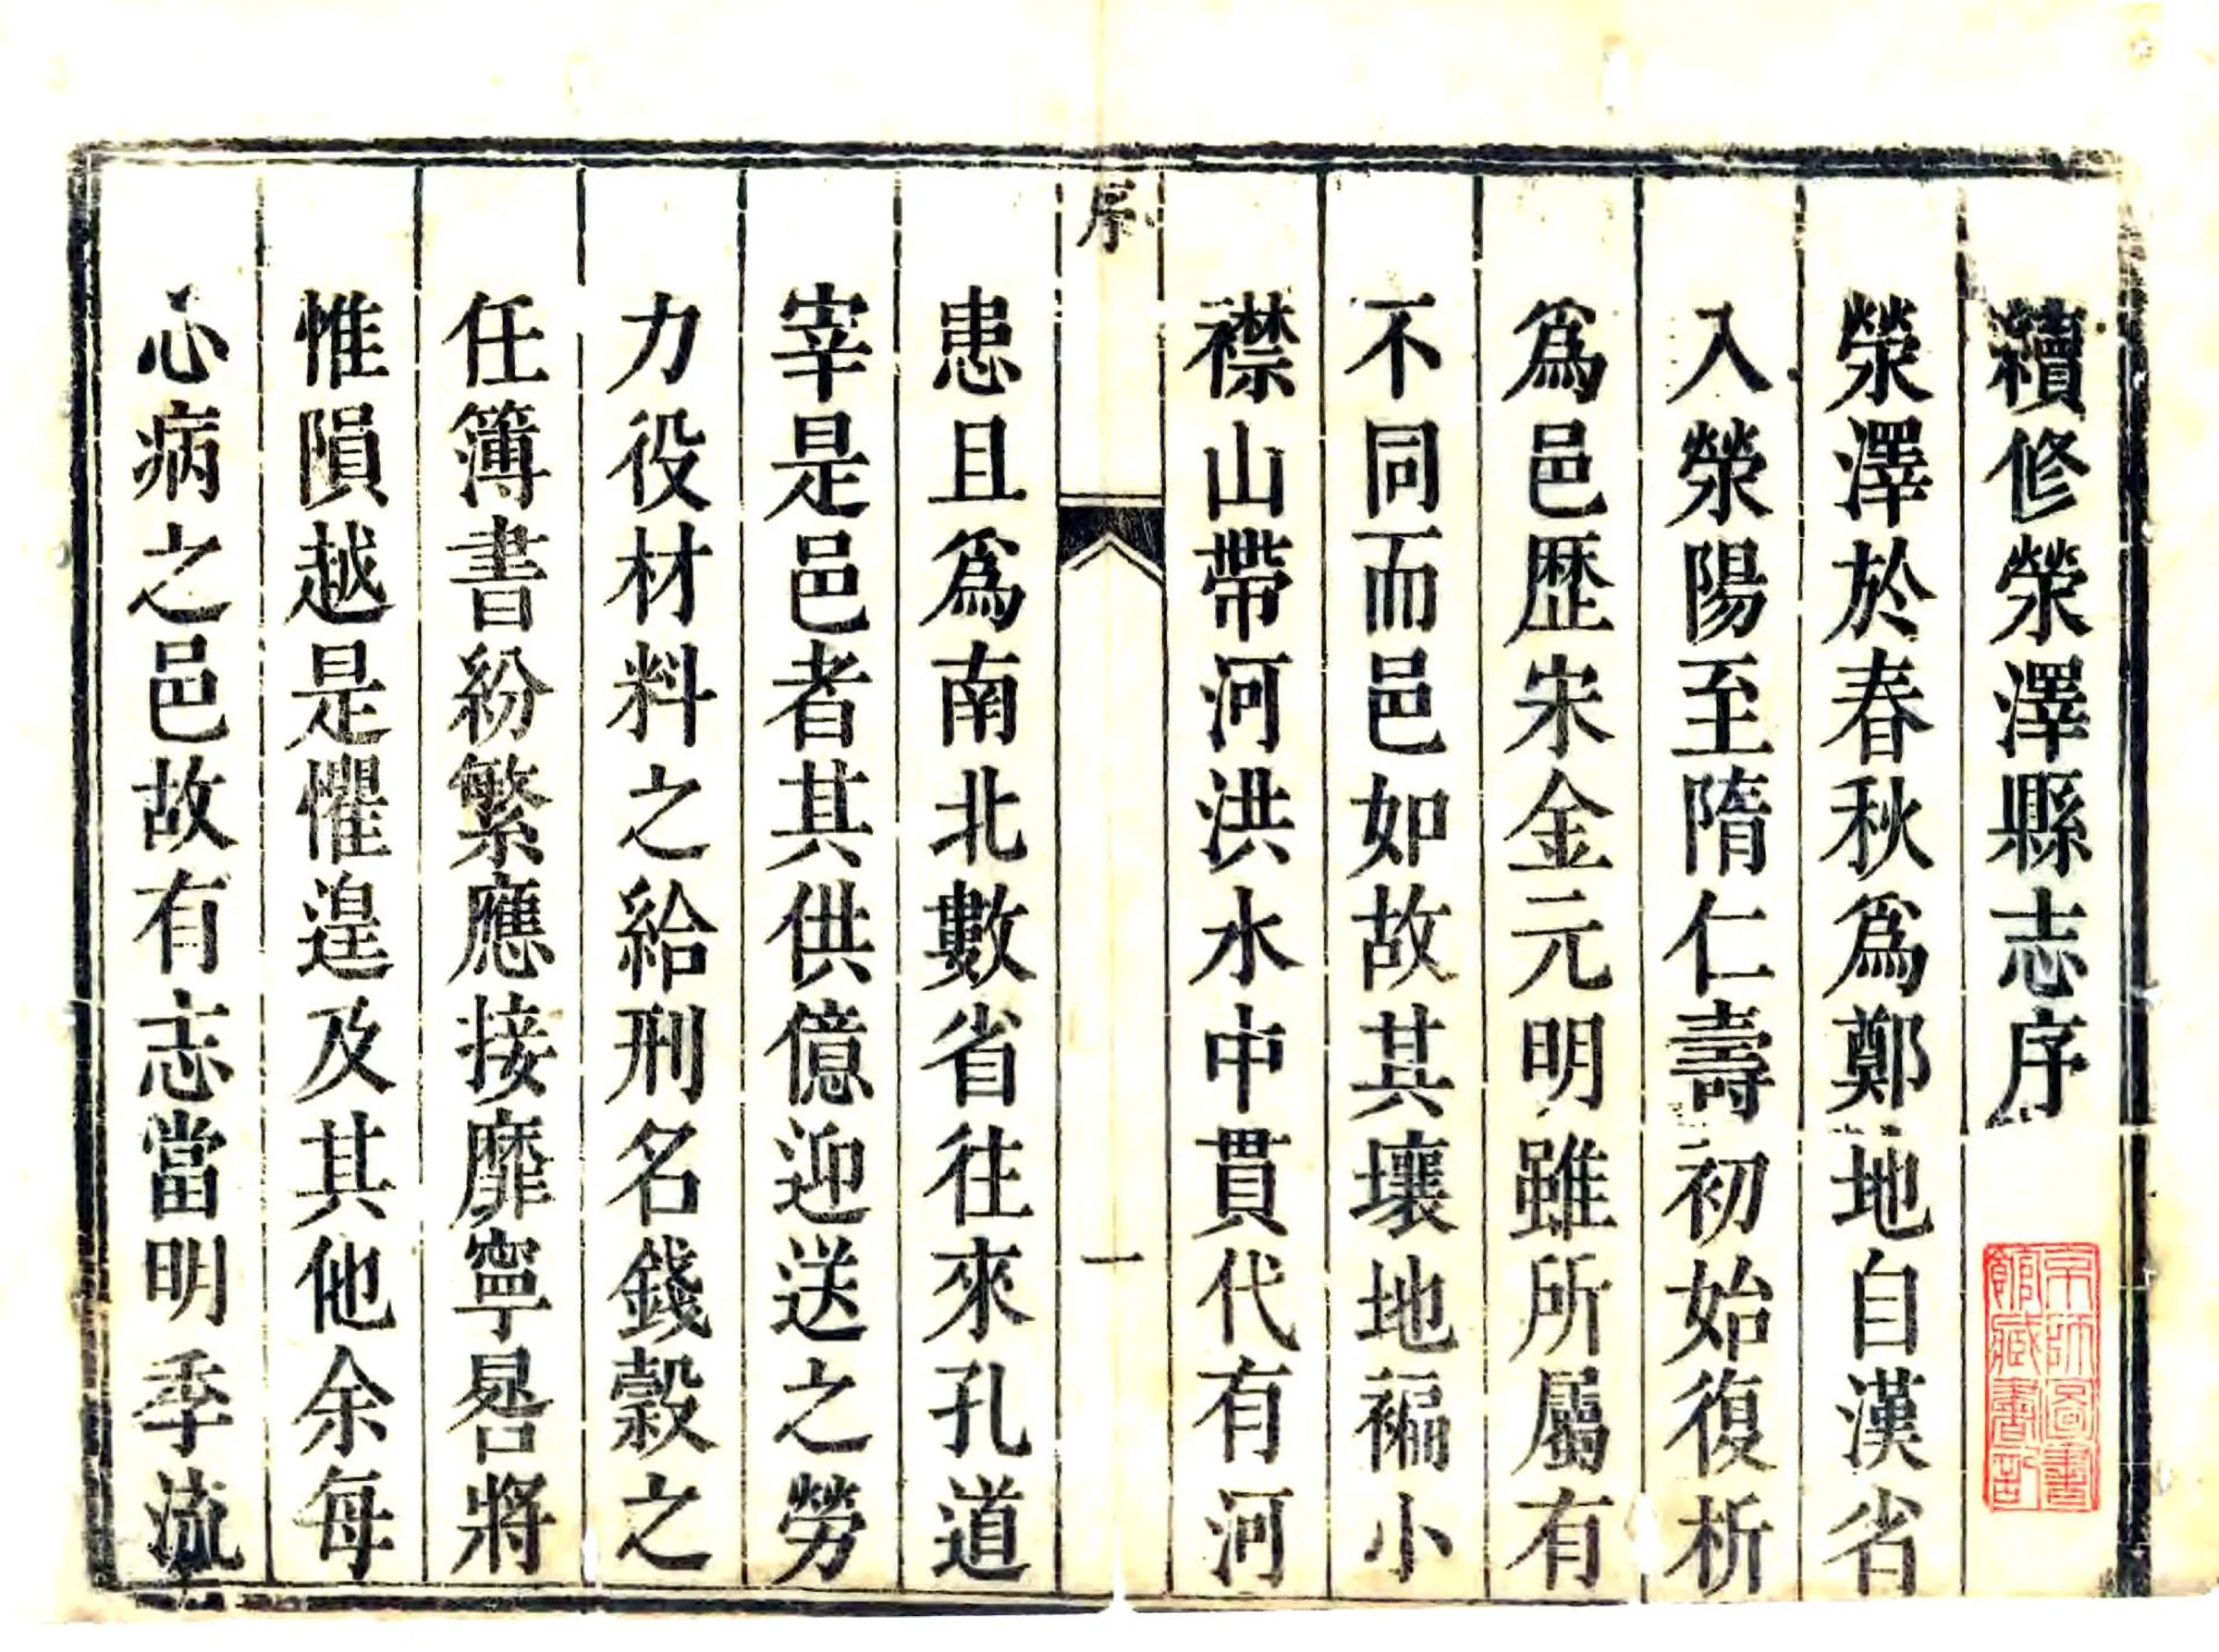 續修滎澤縣志序
滎澤於春秋爲鄭地自漢省
入滎陽至隋仁壽初始復析
爲邑歷宋金元明雖所屬有
不同而邑如故其壤地褊小
襟山帶河洪水中貫代有河
序
一
患且爲南北數省往來孔道
宰是邑者其供億迎送之勞
力役材料之給刑名錢穀之
任簿書紛繁應接靡寧晷將
惟隕越是懼遑及其他余每
心病之邑故有志當明季流
京師圖書
館藏書記